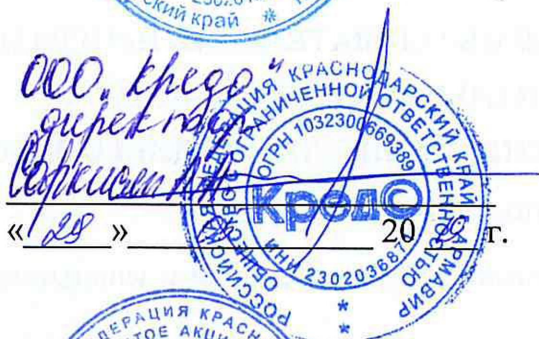 ский край *
ООО „Кредо"
директор
Саркисян
РОССИЙСКАЯ ФЕДЕРАЦИЯ КРАСНОДАРСКИЙ КРАЙ Г.АРМАВИР
ОБЩЕСТВО С ОГРАНИЧЕННОЙ ОТВЕТСТВЕННОСТЬЮ
ОГРН 1032300669389
Кредо
ИНН 230203687
« 29 » 20 г.
ДЕРАЦИЯ КРАСН
ТОЕ АКЦИ